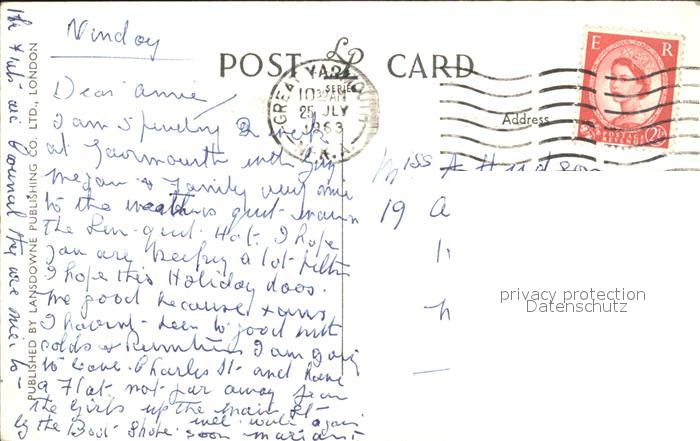 Vinday
POST CARD
LP
SERIES
GREAT YARMOUTH
10 30 AM
25 JLY
1963
E R
POSTAGE
REVENUE
2½
Dear Annie
I am Spending 2 weeks
at Yarmouth with
Megan & Family very nice
to the weather is quit warm
the Sun quit Hot. I hope
you are keeping a lot better
I hope this Holiday does.
me good because
I havent been to good with
colds & I am going
to leave Charles St and have
a Flat not far away from
the Girls up the Main St
by the Boot Shore will write again
soon Marian
the Flats are round they are nice to
Address
Miss A Hudson
19 A
h
privacy protection
Datenschutz
PUBLISHED BY LANSDOWNE PUBLISHING CO. LTD., LONDON